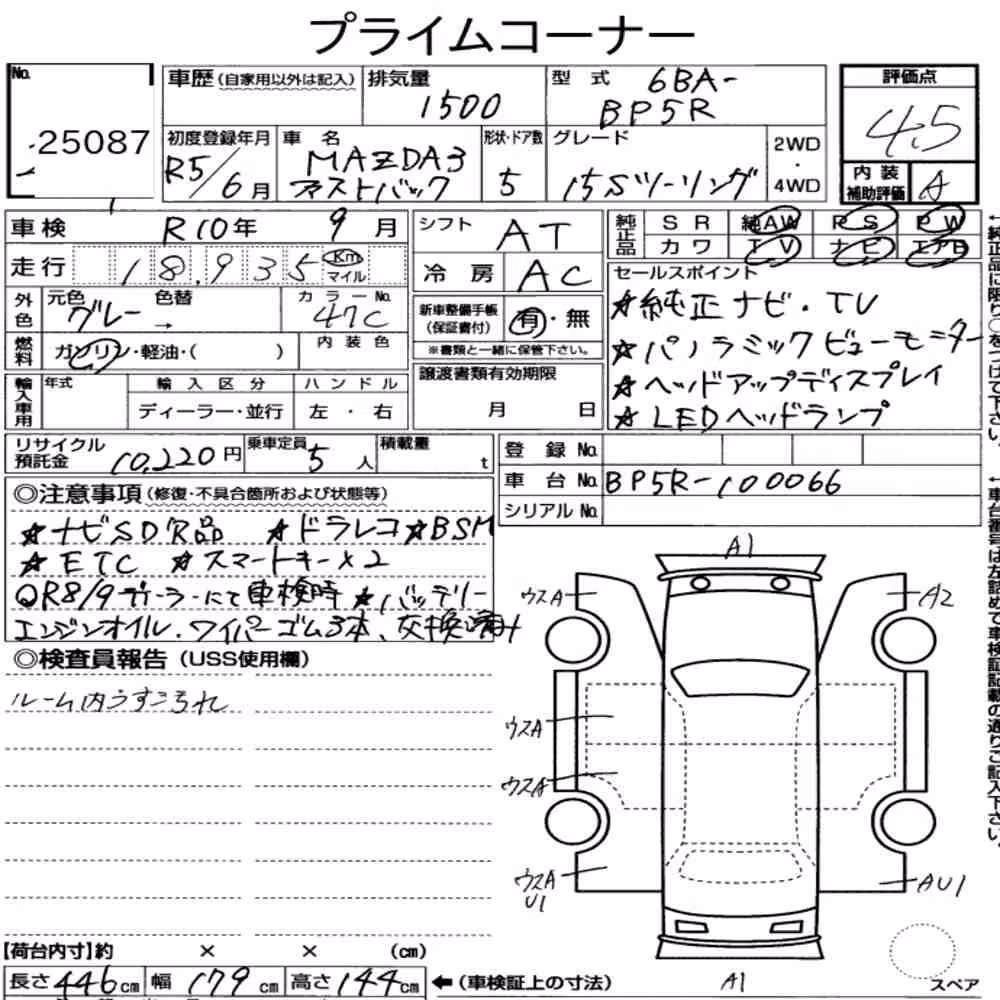 プライムコーナー
No.
25087
車歴(自家用以外は記入)
排気量
1500
型式
6BA-
BP5R
評価点
4.5
内装
補助評価
A
初度登録年月
R5/6月
車名
MAZDA3
ファストバック
形状・ドア数
5
グレード
15Sツーリング
2WD
・
4WD
車検 R10年 9月
走行 18,935 Km
マイル
外色 元色 グレー → 色替
カラーNo.
47C
燃料 ガソリン・軽油・( )
内装色
輸入車用 年式 輸入区分 ハンドル
ディーラー・並行 左・右
シフト AT
冷房 AC
新車整備手帳
(保証書付)
有・無
※書類と一緒に保管下さい。
譲渡書類有効期限
月 日
純正品 SR 純AW PS PW
カワ TV ナビ エアB
セールスポイント
★純正ナビ・TV
★パノラミックビューモニター
★ヘッドアップディスプレイ
★LEDヘッドランプ
←純正品に限り○をつけて下さい。
リサイクル
預託金
10,220円
乗車定員
5人
積載量
t
登録No.
車台No. BP5R-100066
シリアルNo.
←車台番号は左詰めで車検証記載の通りご記入下さい。
◎注意事項(修復・不具合箇所および状態等)
★ナビSD欠品 ★ドラレコ★BSM
★ETC ★スマートキー×2
○R8/9ディーラーにて車検時★バッテリー
エンジンオイル、ワイパーゴム3本、交換済み
◎検査員報告(USS使用欄)
ルーム内うすごろれ
A1
ウスA
A2
ウスA
ウスA
ウスA
U1
AU1
A1
スペア
【荷台内寸】約 × × (cm)
長さ446cm 幅179cm 高さ144cm ←(車検証上の寸法)